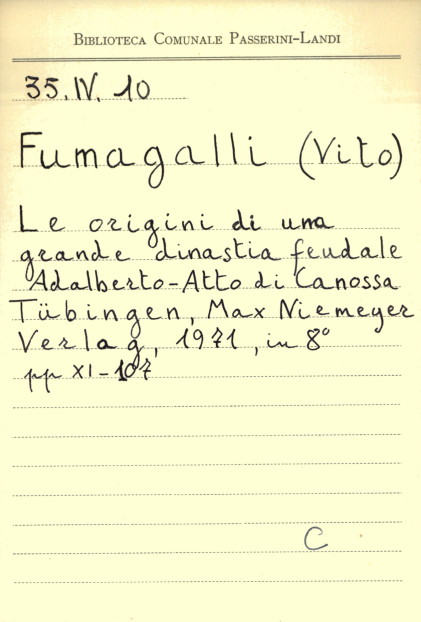 BIBLIOTECA COMUNALE PASSERINI-LANDI
35.IV.10
Fumagalli (Vito)
Le origini di una
grande dinastia feudale
Adalberto-Atto di Canossa
Tübingen, Max Niemeyer
Verlag, 1971, in 8°
pp XI-107
C